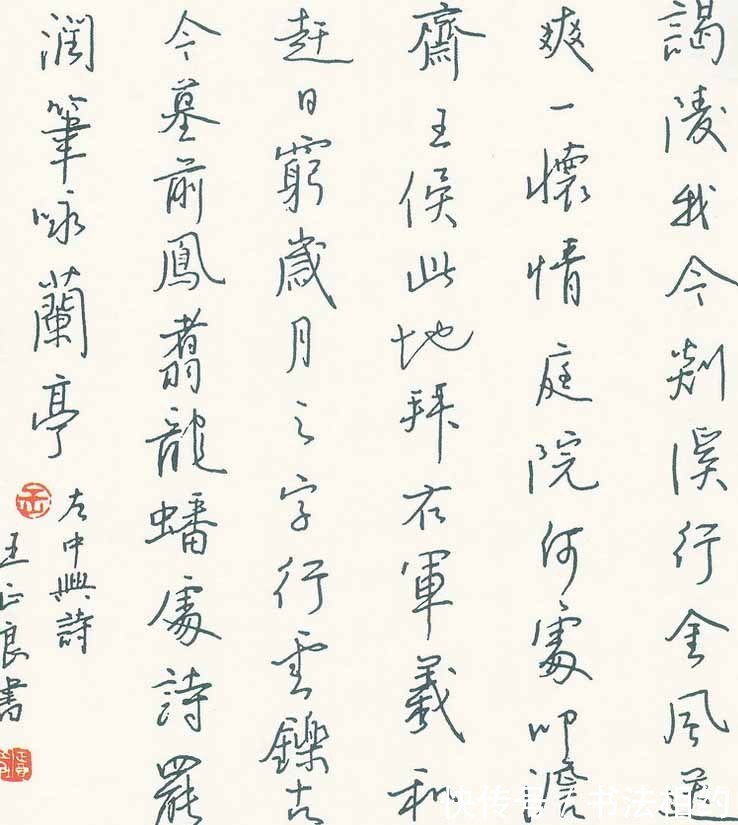 謁陵我今剡溪行金風送
爽一懷情庭院何處叩澹
齋王侯此地拜右軍羲和
赶日窮歲月之字行雲鑠古
今墓前鳳翥龍蟠處詩罷
潤筆咏蘭亭
左中興詩
王正良書
快传号/书法相约